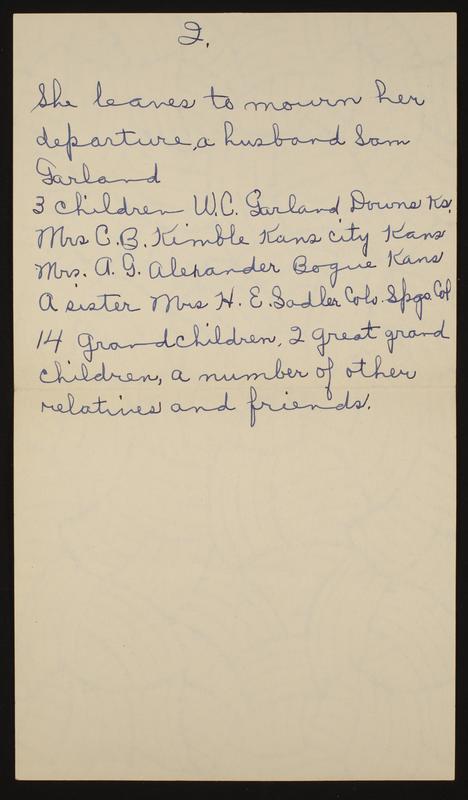 2.
She leaves to mourn her
departure, a husband Sam
Garland
3 children W.C. Garland Downs Ks.
Mrs C.B. Kimble Kans city Kans
Mrs. A. G. Alexander Bogue Kans
A sister Mrs H. E. Sadler Colo. Spgs. Col
14 Grandchildren, 2 great grand
children, a number of other
relatives and friends.